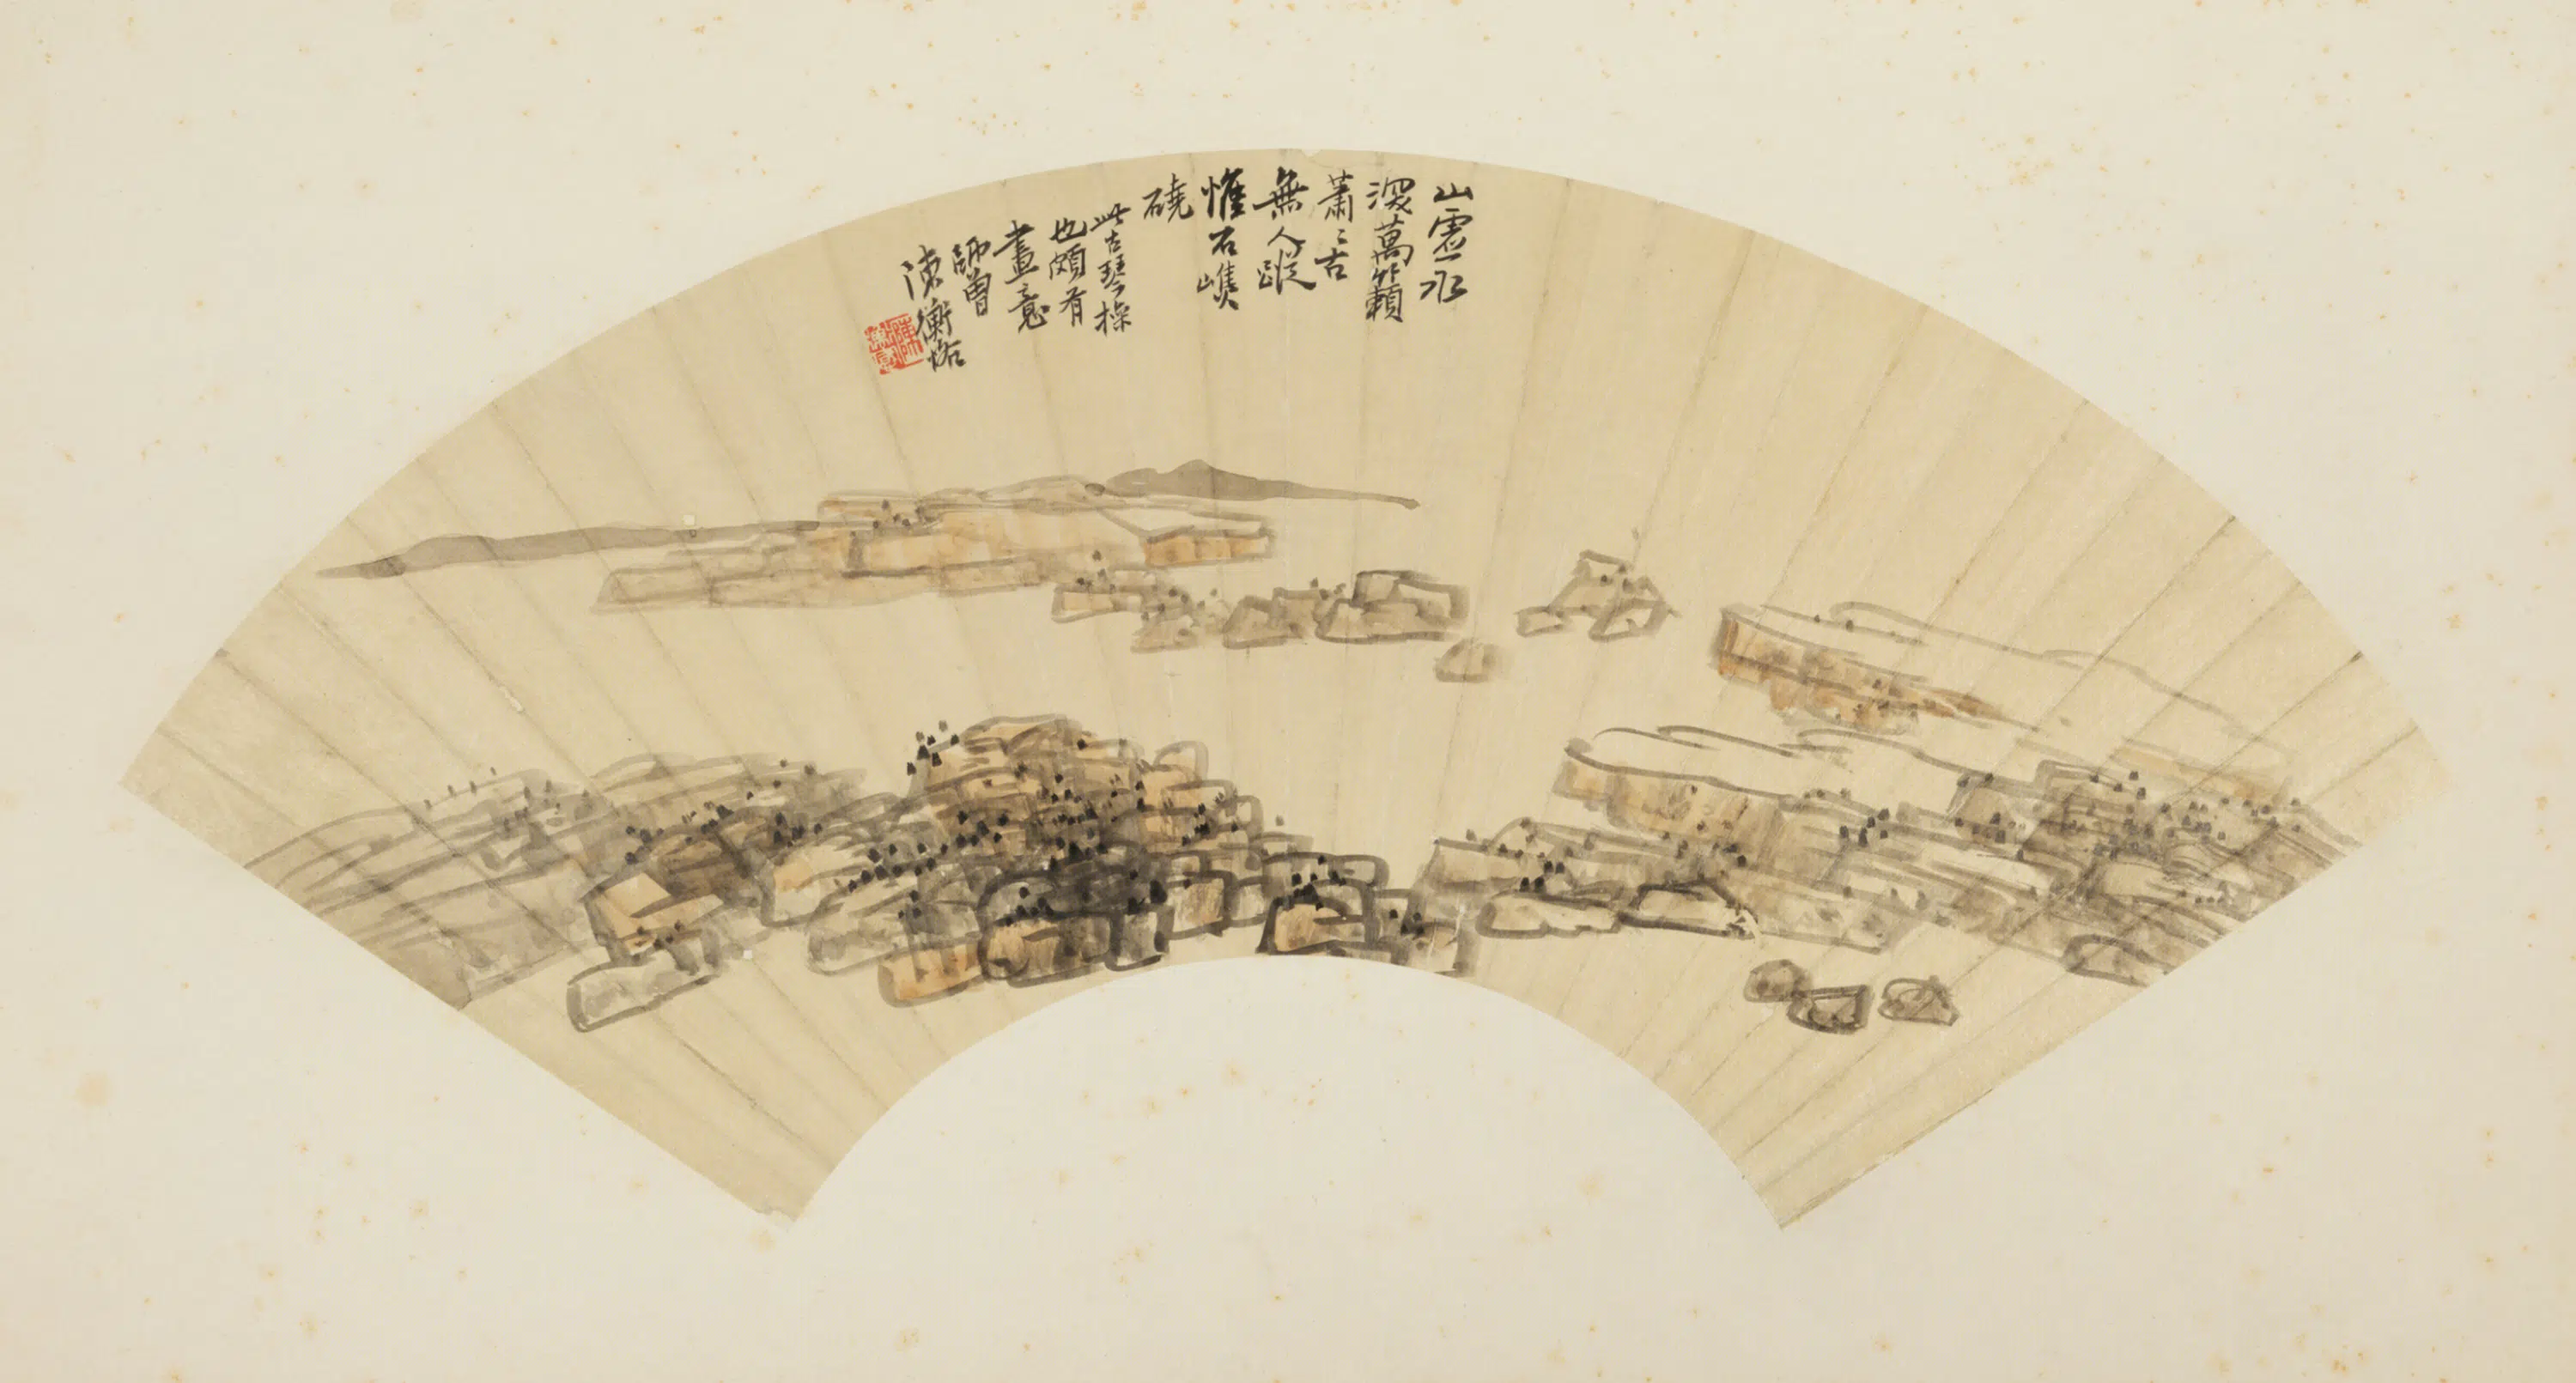 山虛水
深萬籟
蕭〻古
無人蹤
惟石嶕
磽
此古琴操
也頗有
畫意
師曾
陳衡恪